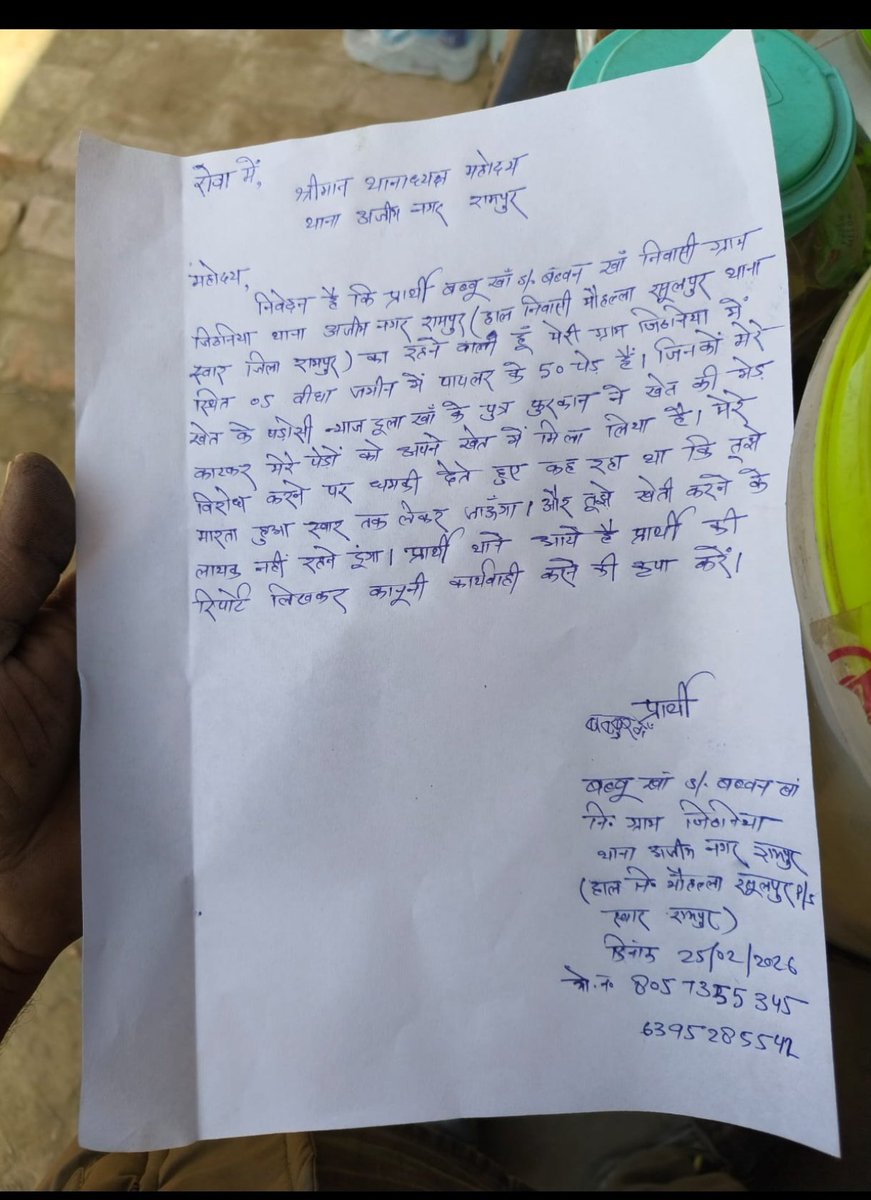 सेवा में,
श्रीमान थानाध्यक्ष महोदय
थाना अजीम नगर रामपुर
महोदय,
निवेदन है कि प्रार्थी बब्बू खाँ s/. बब्वन खाँ निवासी ग्राम
जिठनिया थाना अजीम नगर रामपुर (हाल निवासी मौहल्ला रसूलपुर थाना
स्वार जिला रामपुर) का रहने वाला हूँ मेरी ग्राम जिठनिया में
स्थित 05 वीघा जमीन में पापलर के 50 पेड हैं। जिनकों मेरे
खेत के पडोसी दूला खाँ के पुत्र फुरकान ने खेत की मेड़
काटकर मेरे पेडों को अपने खेत में मिला लिया है। मेरे
विरोध करने पर धमकी देते हुए कह रहा था कि तूझे
मारता हुआ स्वार तक लेकर जाऊँगा। और तूझे खेती करने के
लायक नहीं रहने दूंगा। प्रार्थी थाने आये है प्रार्थी की
रिपोर्ट लिखकर कानूनी कार्यवाही करने की कृपा करें।
प्रार्थी
बब्बू खां s/. बब्वन खां
नि॰ ग्राम जिठनिया
थाना अजीम नगर रामपुर
(हाल नि॰ मौहल्ला रसूलपुर P/s
स्वार रामपुर)
दिनांक 25/02/2026
मो. न॰ 8057355345
6395285542